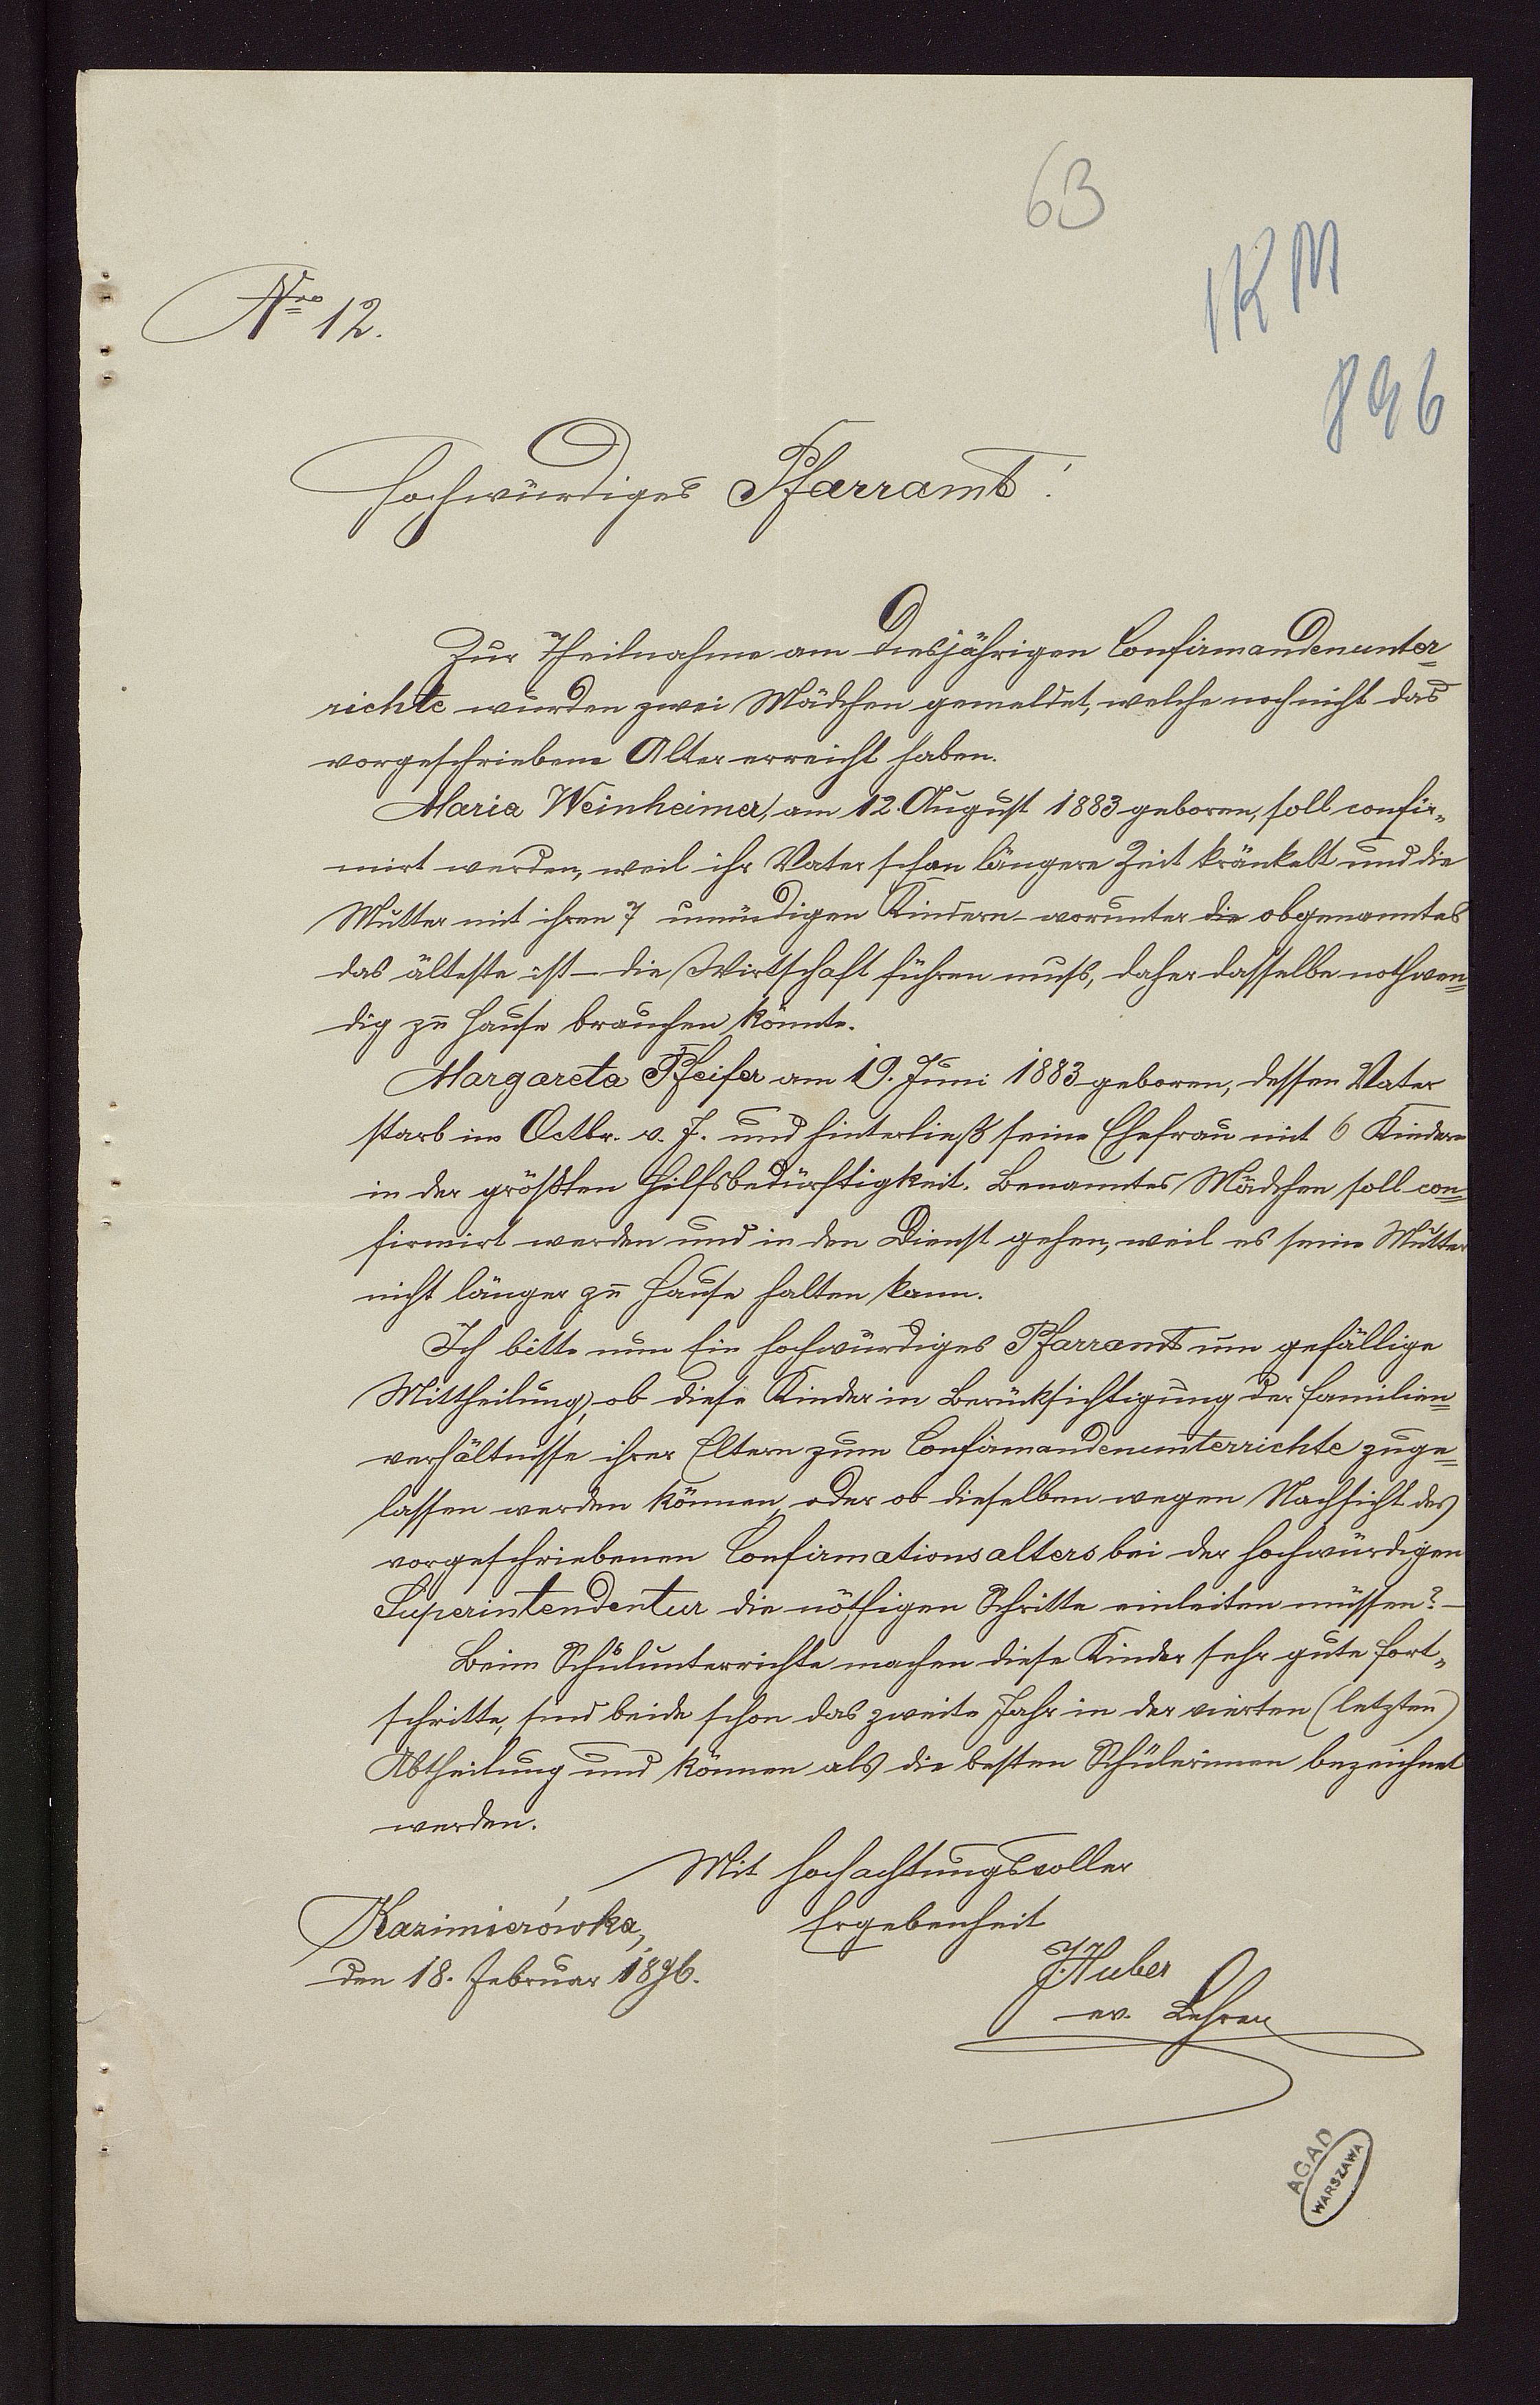 63
1KM
896
Nro 12.
Hochwürdiges Pfarramt!
Zur Theilnahme am diesjährigen Confirmandenunter=
richte wurden zwei Mädchen gemeldet, welche noch nicht das
vorgeschriebene Alter erreicht haben.
Maria Weinheimer, am 12. August 1883 geboren, soll confir„
mirt werden, weil ihr Vater schon längere Zeit kränkelt und die
Mutter mit ihren 7 unmündigen Kindern – worunter die obgenanntes
das älteste ist – die Wirtschaft führen muss, daher dasselbe nothwen=
dig zu Hause brauchen könnte.
Margareta Pfeifer am 19. Juni 1883 geboren, dessen Vater
starb im Octbr. v. J. und hinterließ seine Ehefrau mit 6 Kindern
in der größten Hilfsbedürftigkeit. Benanntes Mädchen soll con=
firmirt werden und in den Dienst gehen, weil es seine Mutter
nicht länger zu Hause halten kann.
Ich bitte nun Ein hochwürdiges Pfarramt um gefällige
Mittheilung, ob diese Kinder in Berücksichtigung der Familien=
verhältnisse ihrer Eltern zum Confirmandenunterrichte zuge=
lassen werden können, oder ob dieselben wegen Nachsicht des
vorgeschriebenen Confirmationsalters bei der hochwürdigen
Superintendentur die nöthigen Schritte einleiten müssen? –
Beim Schulunterrichte machen diese Kinder sehr gute Fort„
schritte, sind beide schon das zweite Jahr in der vierten (letzten)
Abtheilung und können als die besten Schülerinnen bezeichnet
werden.
Mit hochachtungsvoller
Ergebenheit
Kazimierówka,
den 18. Februar 1896.
J. Huber
ev. Lehrer
AGAD
WARSZAWA